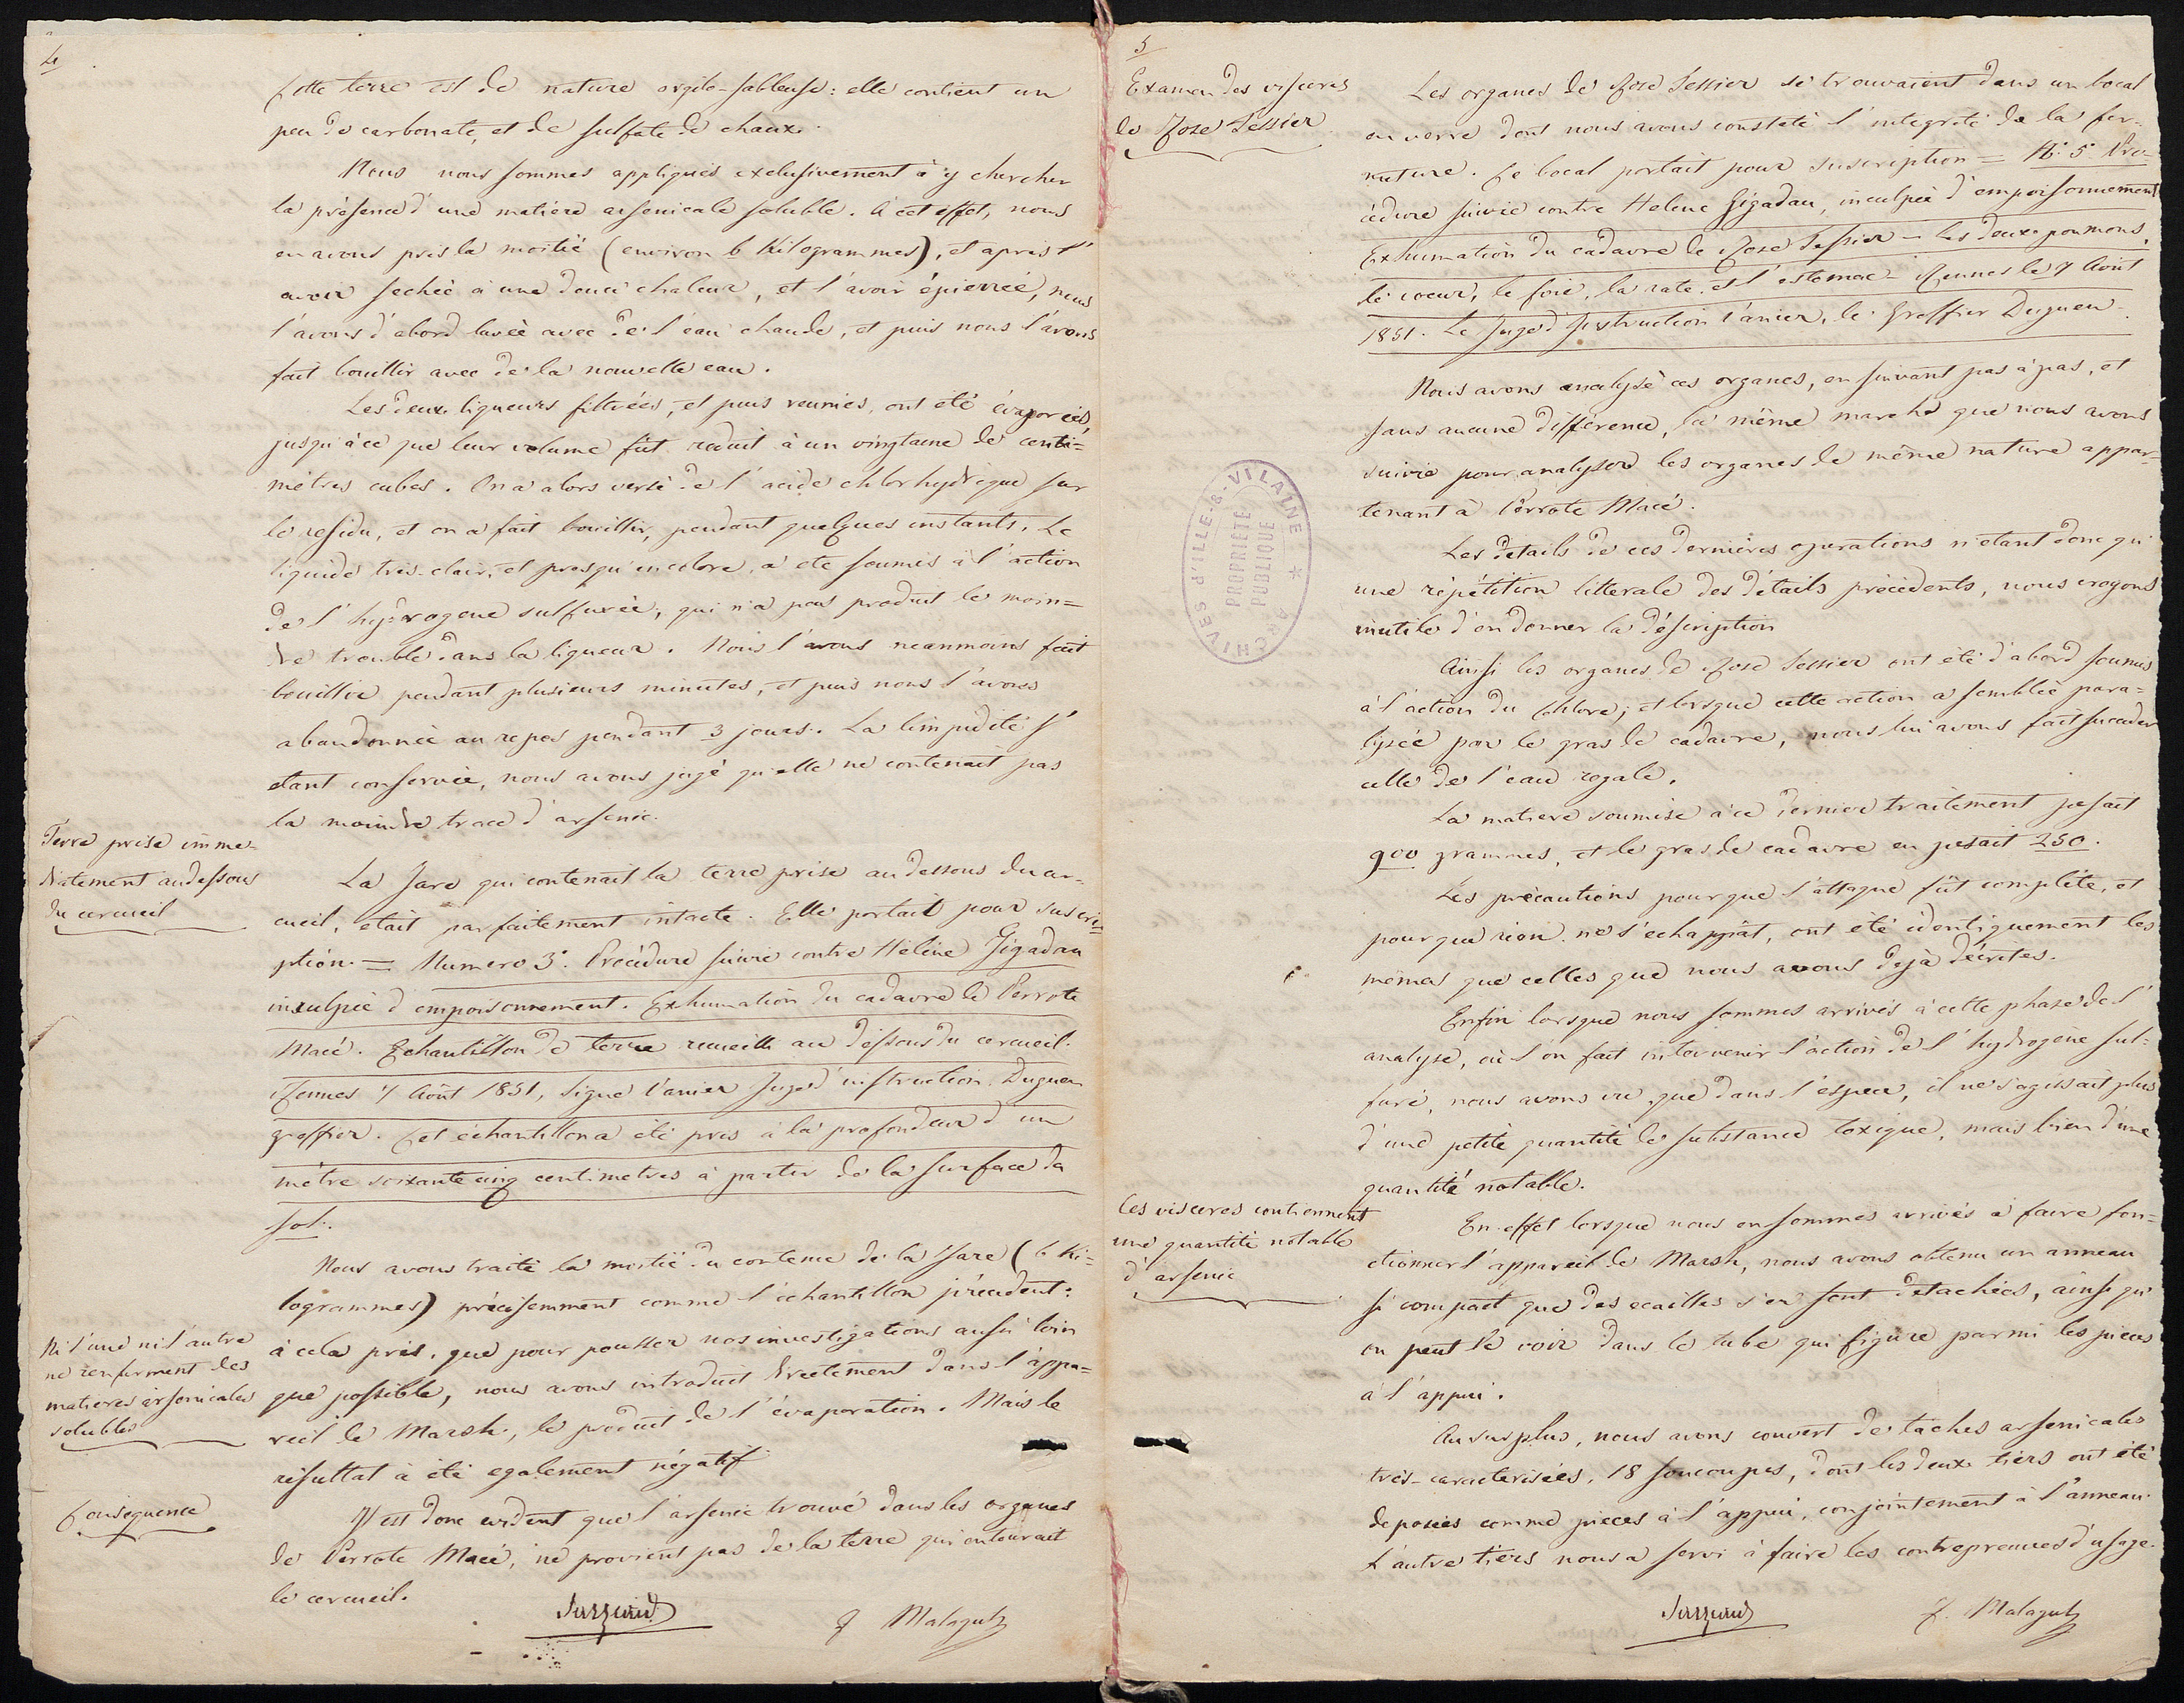 4
Cette terre est de nature argilo-sableuse: elle contient un
peu de carbonate, et de sulfate de chaux.
Nous nous sommes appliqués exclusivement à y chercher
la présence d'une matière arsenicale soluble. A cet effet, nous
en avons pris la moitié (environ 6 Kilogrammes), et après l'
avoir sechée à une douce chaleur, et l'avoir épierrée, nous
l'avons d'abord lavée avec de l'eau chaude, et puis nous l'avons
fait bouillir avec de la nouvelle eau.
Les deux liqueurs filtrées, et puis reunies, ont été évaporées,
jusqu'à ce que leur volume fût reduit à un vingtaine de centi=
mètres cubes. On a alors versé de l'acide chlorhydrique sur
le residu, et on a fait bouillir, pendant quelques instants. Le
liquide très-clair, et presqu'incolore, a eté soumis à l'action
de l'hydrogene sulfurée, qui n'a pas produit le moin=
dre trouble dans la liqueur. Nous l'avons neanmoins fait
bouillir pendant plusieurs minutes, et puis nous l'avons
abandonnée au repos pendant 3 jours. La limpidité s'
etant conservée, nous avons jugé qu'elle ne contenait pas
la moindre trace d'arsenic.
Terre prise imme=
diatement audessous
du cercueil
La Jare qui contenait la terre prise au dessous du cer-
cueil, était parfaitement intacte. Elle portait pour suscri=
ption = Numero 3°. Procédure suivie contre Hélène Jégadau
inculpée d'empoisonnement. Exhumation du cadavre de Perrote
Macé. Echantillon de terre recueilli au dessous du cercueil.
Rennes 7 Août 1851, Signé Vanier Juge d'instruction. Duguen
greffier. Cet échantillon a été pris à la profondeur d'un
mètre soixante cinq centimetres à partir de la surface du
sol.
Nous avons traité la moitié du contenu de la Jare (6 Ki=
logrammes) précisemment comme l'échantillon précedent:
à cela près, que pour pousser nos investigations aussi loin
que possible, nous avons introduit directement dans l'appa=
reil de Marsh, le produit de l'évaporation. Mais le
résultat à été egalement négatif
Ni l'une ni l'autre
ne renferment des
matieres arsenicales
solubles
Consequence
Il est donc evident que l'arsenic trouvé dans les organes
de Perrote Macé, ne provient pas de la terre qui entourait
le cercueil.
Sarzeaud
F Malaguti
5
Examen des visceres
de Rose Tessier
Les organes de Rose Tessier se trouvaient dans un bocal
en verre dont nous avons constaté l'integrité de la fer=
meture. Ce bocal portait pour suscription = N° 5 Pro=
cédure suivie contre Helene Jégadau, inculpée d'empoisonnement
Exhumation du cadavre de Rose Tessier - Les deux poumons,
le coeur, le foie, la rate et l'estomac - Rennes le 7 Août
1851. Le Juge d'Instruction Vanier, le Greffier Duguen.
Nous avons analysé ces organes, en suivant pas à pas, et
sans aucune différence, la même marche que nous avons
suivie pour analyser les organes de même nature appar=
tenant à Perrote Macé.
Les détails de ces dernières operations n'etant donc qu'
une répétition litterale des détails précédents, nous croyons
inutile d'en donner la déscription
Ainsi les organes de Rose Tessier ont été d'abord soumis
à l'action du chlore; et lorsque cette action a semblée para=
lysée par le gras de cadavre, nous lui avons fait succeder
celle de l'eau regale.
La matiere soumise à ce dernier traitement pesait
900 grammes, et le gras de cadavre en pesait 250.
Les précautions pour que l'attaque fût complète, et
pour que rien ne s'echappât, ont été identiquement les
mêmes que celles que nous avons dejà décrites.
Enfin lorsque nous sommes arrivés à cette phase de l'
analyse, où l'on fait intervenir l'action de l'hydrogène sul=
furé, nous avons vu que dans l'espece, il ne s'agissait plus
d'une petite quantité de substance toxique, mais bien d'une
quantité notable.
Ces visceres contiennent
une quantité notable
d'arsenic
En effet lorsque nous en sommes arrivés à faire fon=
ctionner l'appareil de Marsh, nous avons obtenu un anneau
si compact que des ecailles s'en sont détachées, ainsi qu'
on peut le voir dans le tube qui figure parmi les pièces
à l'appui.
Au surplus, nous avons couvert de taches arsenicales
très-caracterisées, 18 soucoupes, dont les deux tiers ont été
deposées comme pièces à l'appui, conjointement à l'anneau.
L'autre tiers nous a servi à faire les contrepreuves d'usage.
Sarzeaud
F. Malaguti
ARCHIVES d'ILLE-&-VILAINE *
PROPRIÉTÉ
PUBLIQUE